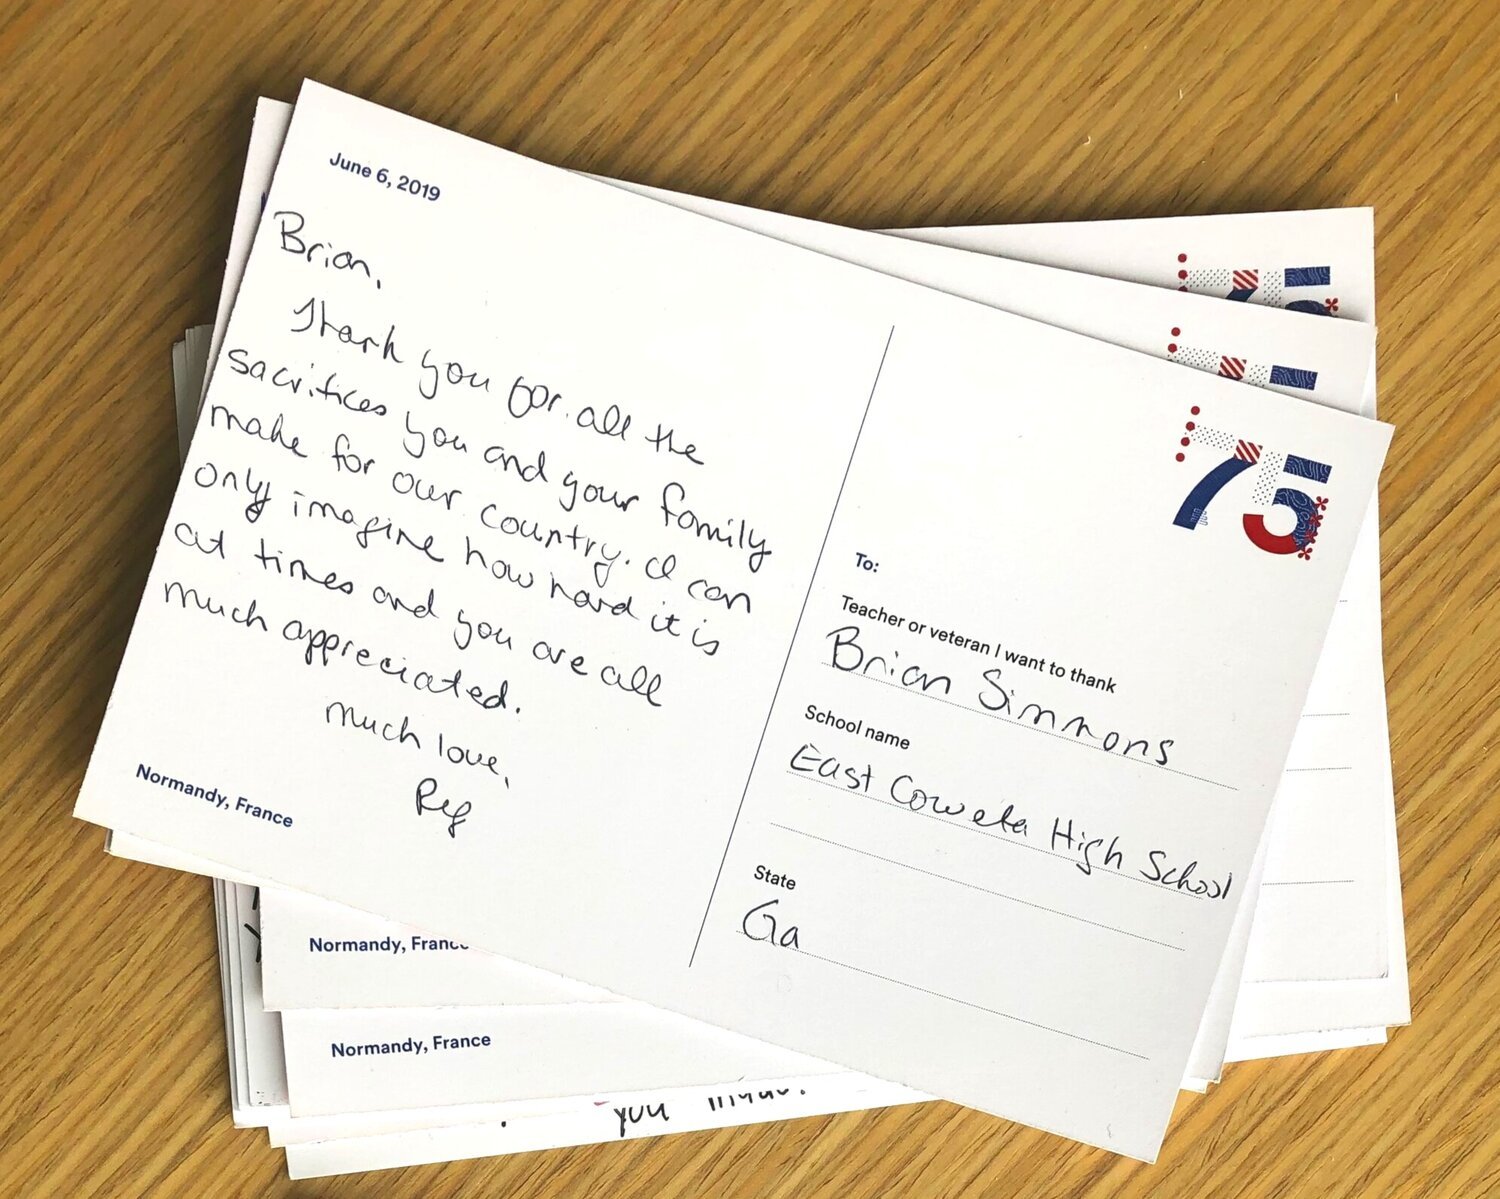 June 6, 2019
Brian,
Thank you for all the
sacrifices you and your family
make for our country. I can
only imagine how hard it is
at times and you are all
much appreciated.
much love,
Reg
Normandy, France
75
To:
Teacher or veteran I want to thank
Brian Simmons
School name
East Coweta High School
State
Ga
75
75
Normandy, France
Normandy, France
you